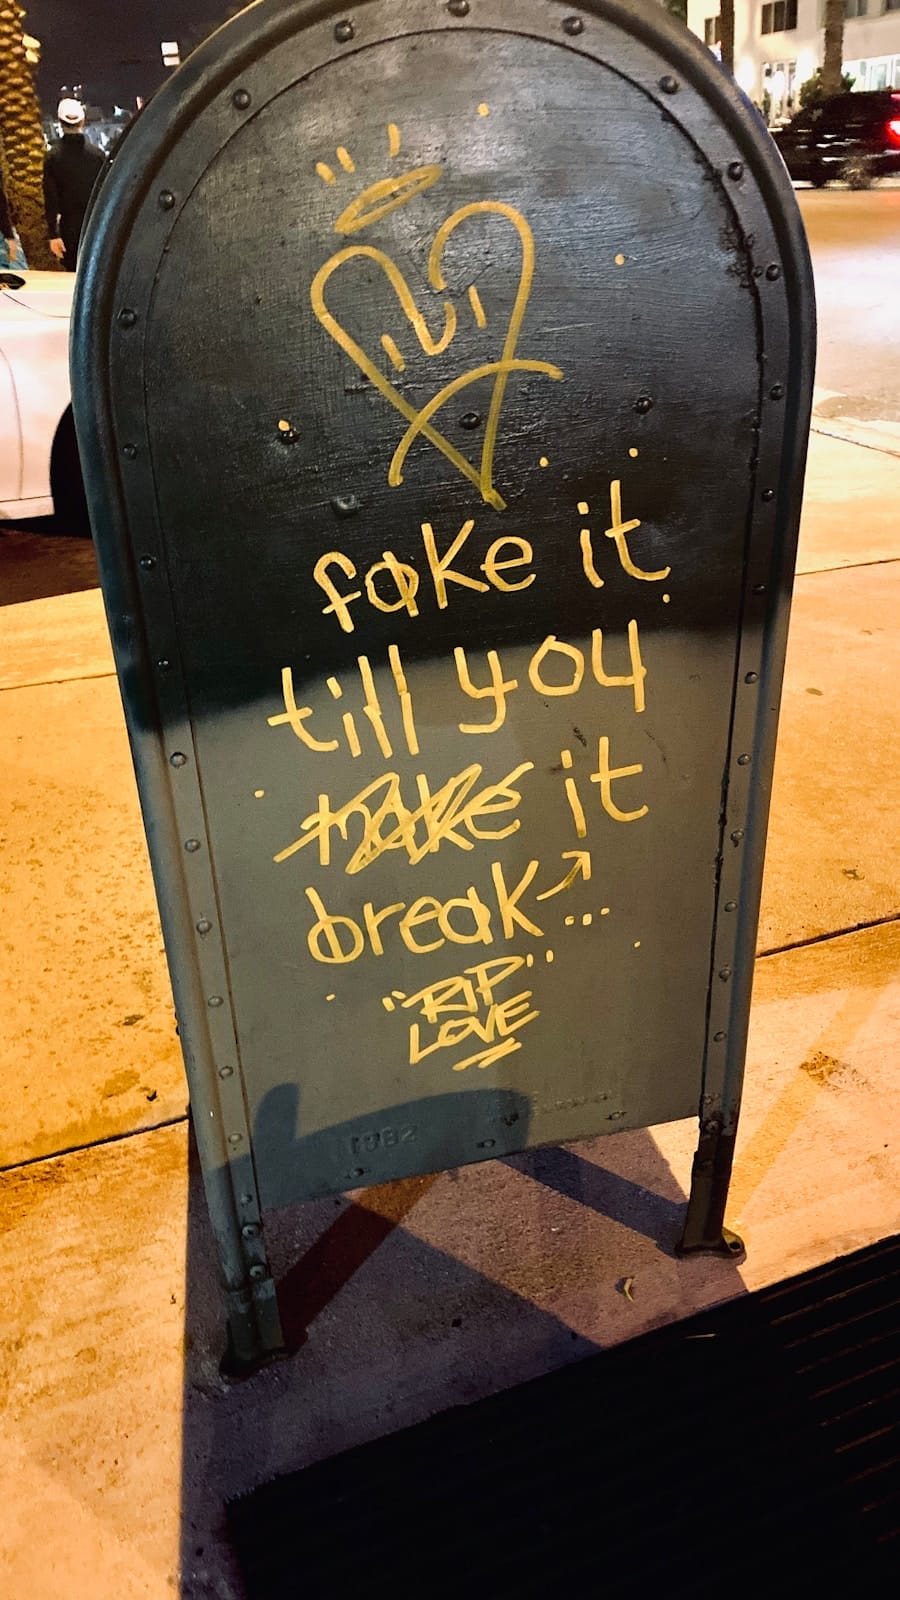 fake it
till you
make it
break ...
"RIP"
LOVE
1982